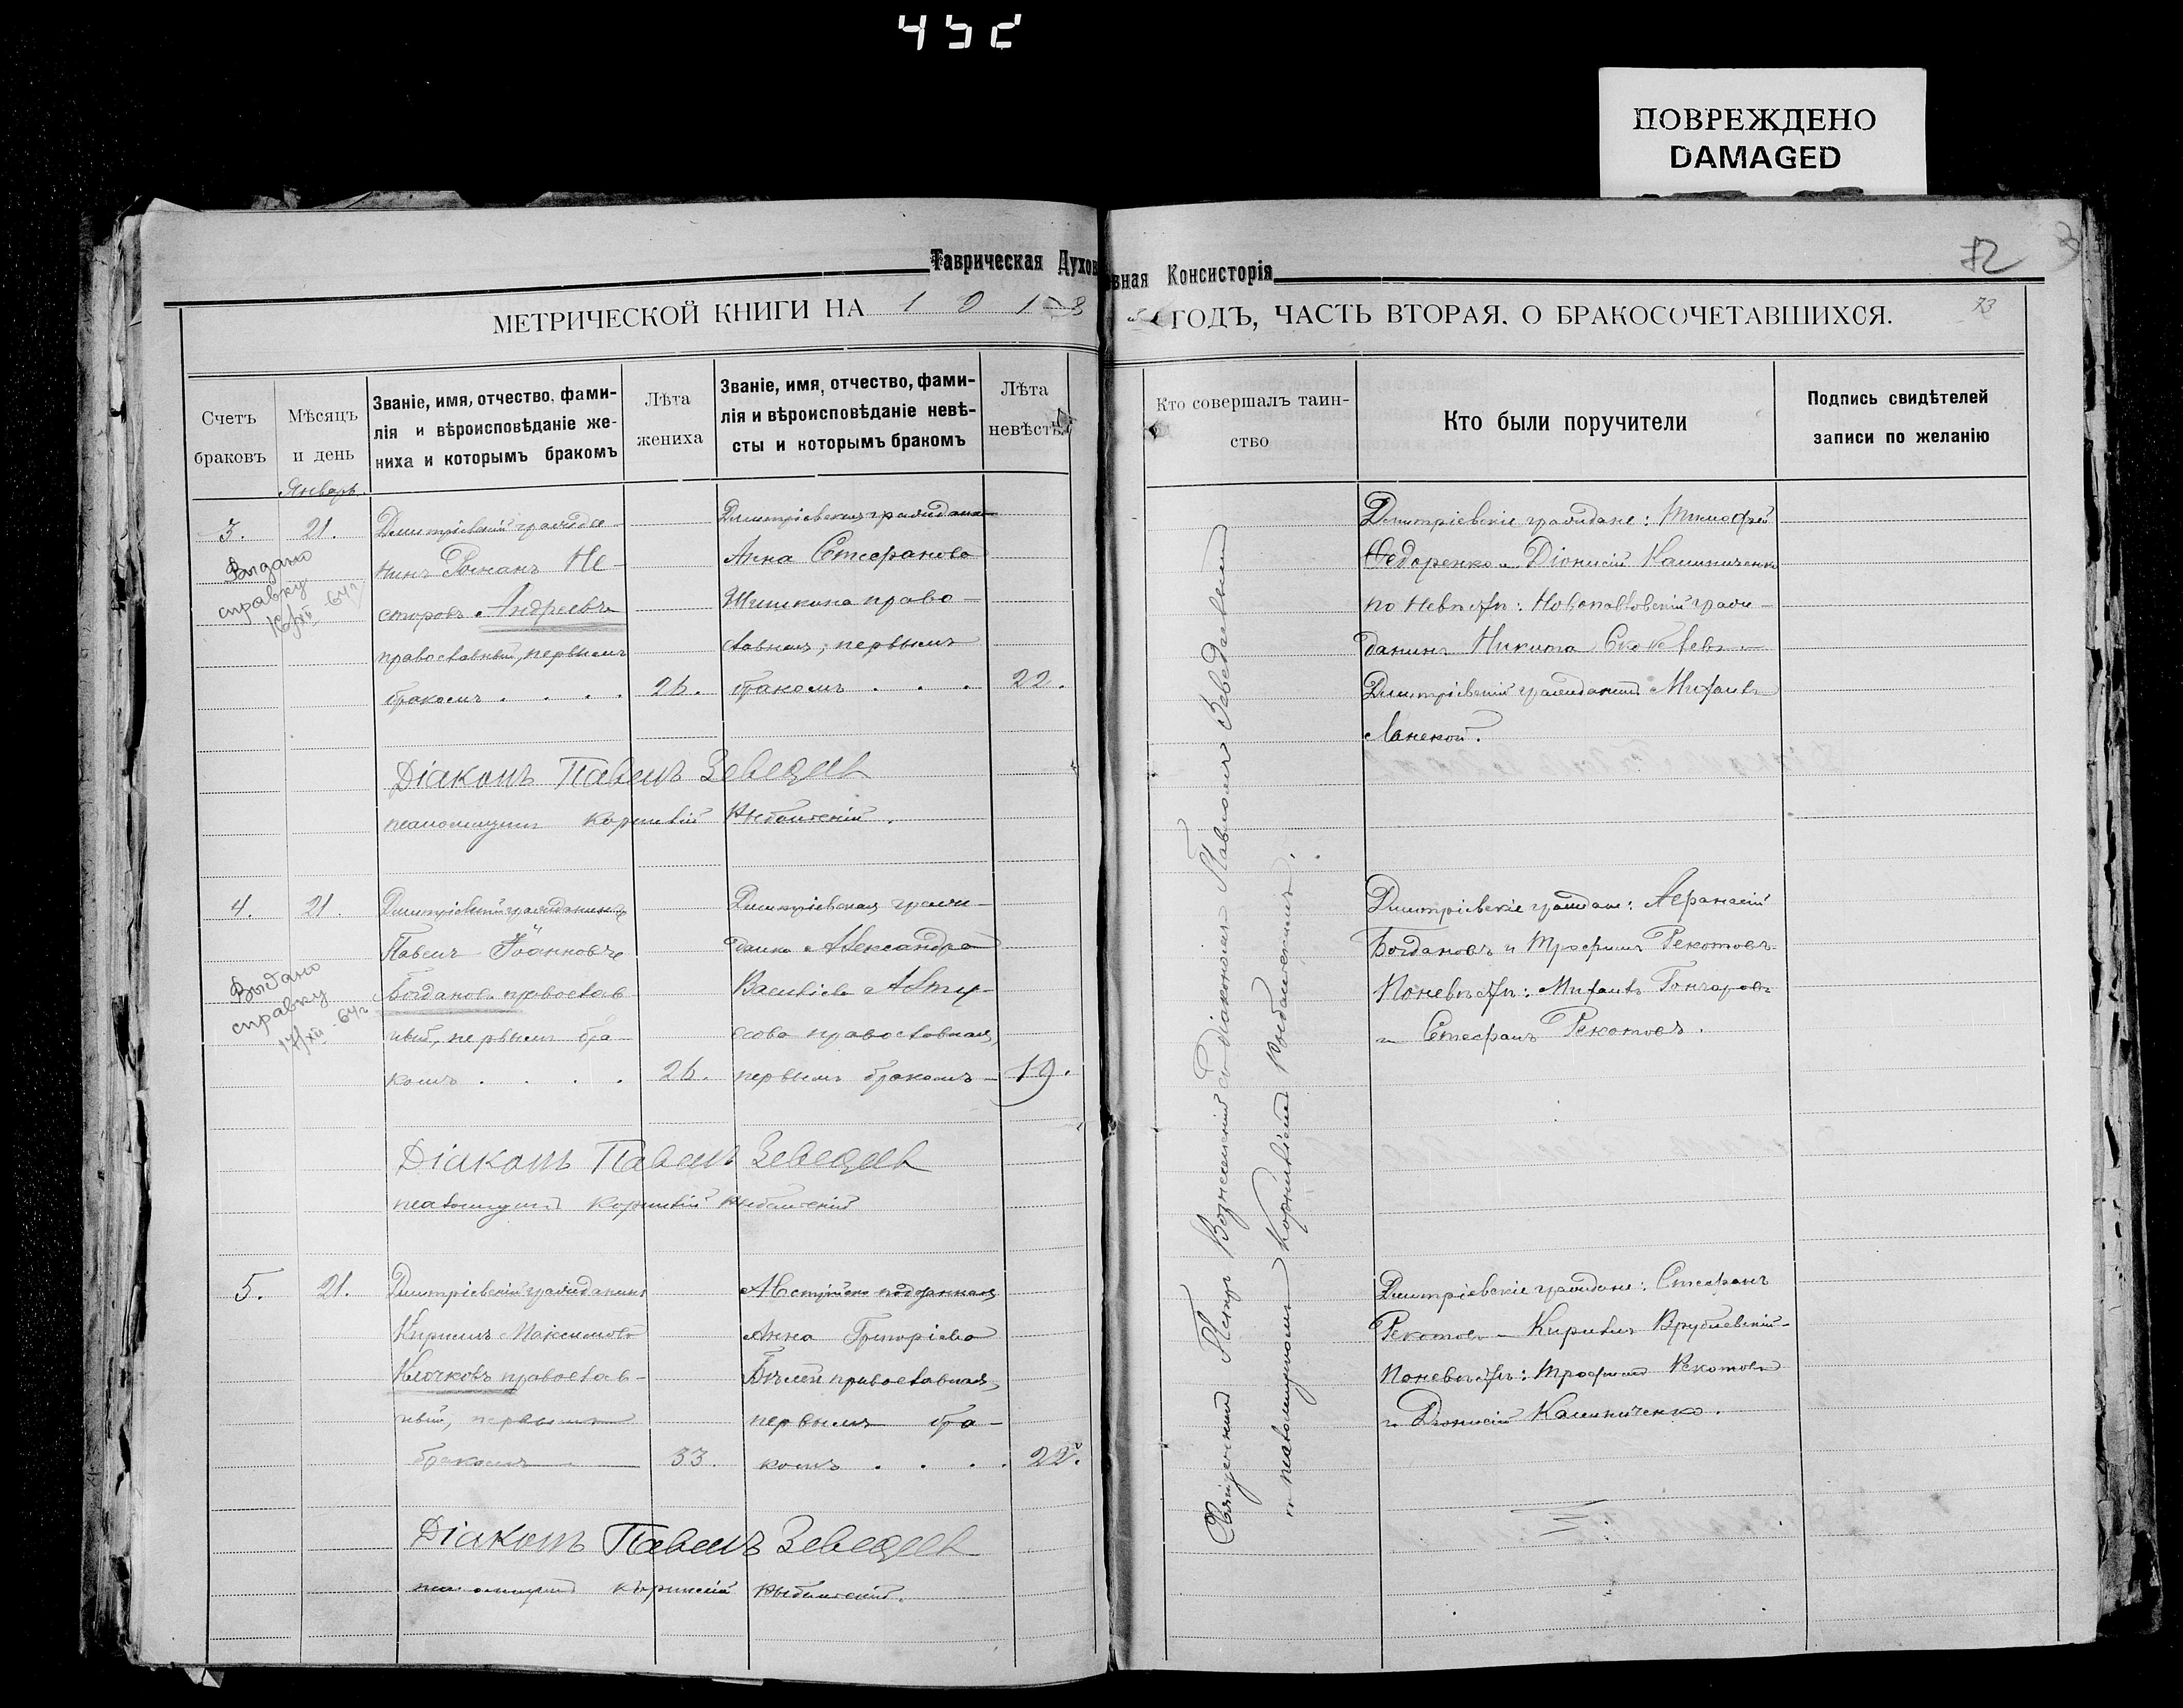 452
ПОВРЕЖДЕНО
DAMAGED
Таврическая Духовная Консисторія
МЕТРИЧЕСКОЙ КНИГИ НА 1918 ГОДЪ, ЧАСТЬ ВТОРАЯ, О БРАКОСОЧЕТАВШИХСЯ.
73
Счетъ браковъ
Мѣсяцъ и день
Званіе, имя, отчество, фами-
лія и вѣроисповѣданіе же-
ниха и которымъ бракомъ
Лѣта
жениха
Званіе, имя, отчество, фами-
лія и вѣроисповѣданіе невѣ-
сты и которымъ бракомъ
Лѣта
невѣсты
Кто совершалъ таин-
ство
Кто были поручители
Подпись свидѣтелей
записи по желанію
Январь.
3.
21.
Выдано
справку
16/XII-64г
Дмитріевскій гражда-
нинъ Романъ Не-
сторовъ Андреевъ
православный, первымъ
бракомъ . . . .
26.
Дмитріевская гражданка
Анна Стефанова
Шишкина право-
славная, первымъ
бракомъ . . .
22.
Дмитріевскіе граждане: Тимофей
Федоренко и Діонисій Калиниченко
по невѣстѣ: Новопавловскій граж-
данинъ Никита и
Дмитріевскій гражданинъ Михаилъ
Ланской.
Діаконъ Павелъ Зеведеев
псаломщикъ Корнилій
4.
21.
Выдано
справку
17/XII-64г
Дмитріевскій гражданинъ
Павелъ Іоанновъ
Богдановъ православ-
ный, первымъ бра-
комъ . . . .
26.
Дмитріевская граж-
данка Александра
Васильева
православная,
первымъ бракомъ
19.
Дмитріевскіе граждане: Афанасій
Богдановъ и Трофимъ Рекотовъ
По невѣстѣ: Михаилъ Гончаровъ
и Стефанъ Рекотовъ.
Діаконъ Павелъ Зеведеев
псаломщикъ Корнилій
5.
21.
Дмитріевскій гражданинъ
Кириллъ Максимовъ
Клочковъ православ-
ный, первымъ
бракомъ
33.
Австрійско подданная
Анна Григоріева
православная,
первымъ бра-
комъ . . . .
22.
Дмитріевскіе граждане: Стефанъ
Рекотовъ и Кириллъ Врублевскій
По невѣстѣ: Трофимъ Рекотовъ
и Діонисій Калиниченко.
Діаконъ Павелъ Зеведеев
псаломщикъ Корнилій
Священникъ Петръ Вознесенскій съ діакономъ Павломъ Зеведеевымъ
и псаломщикомъ Корниліемъ